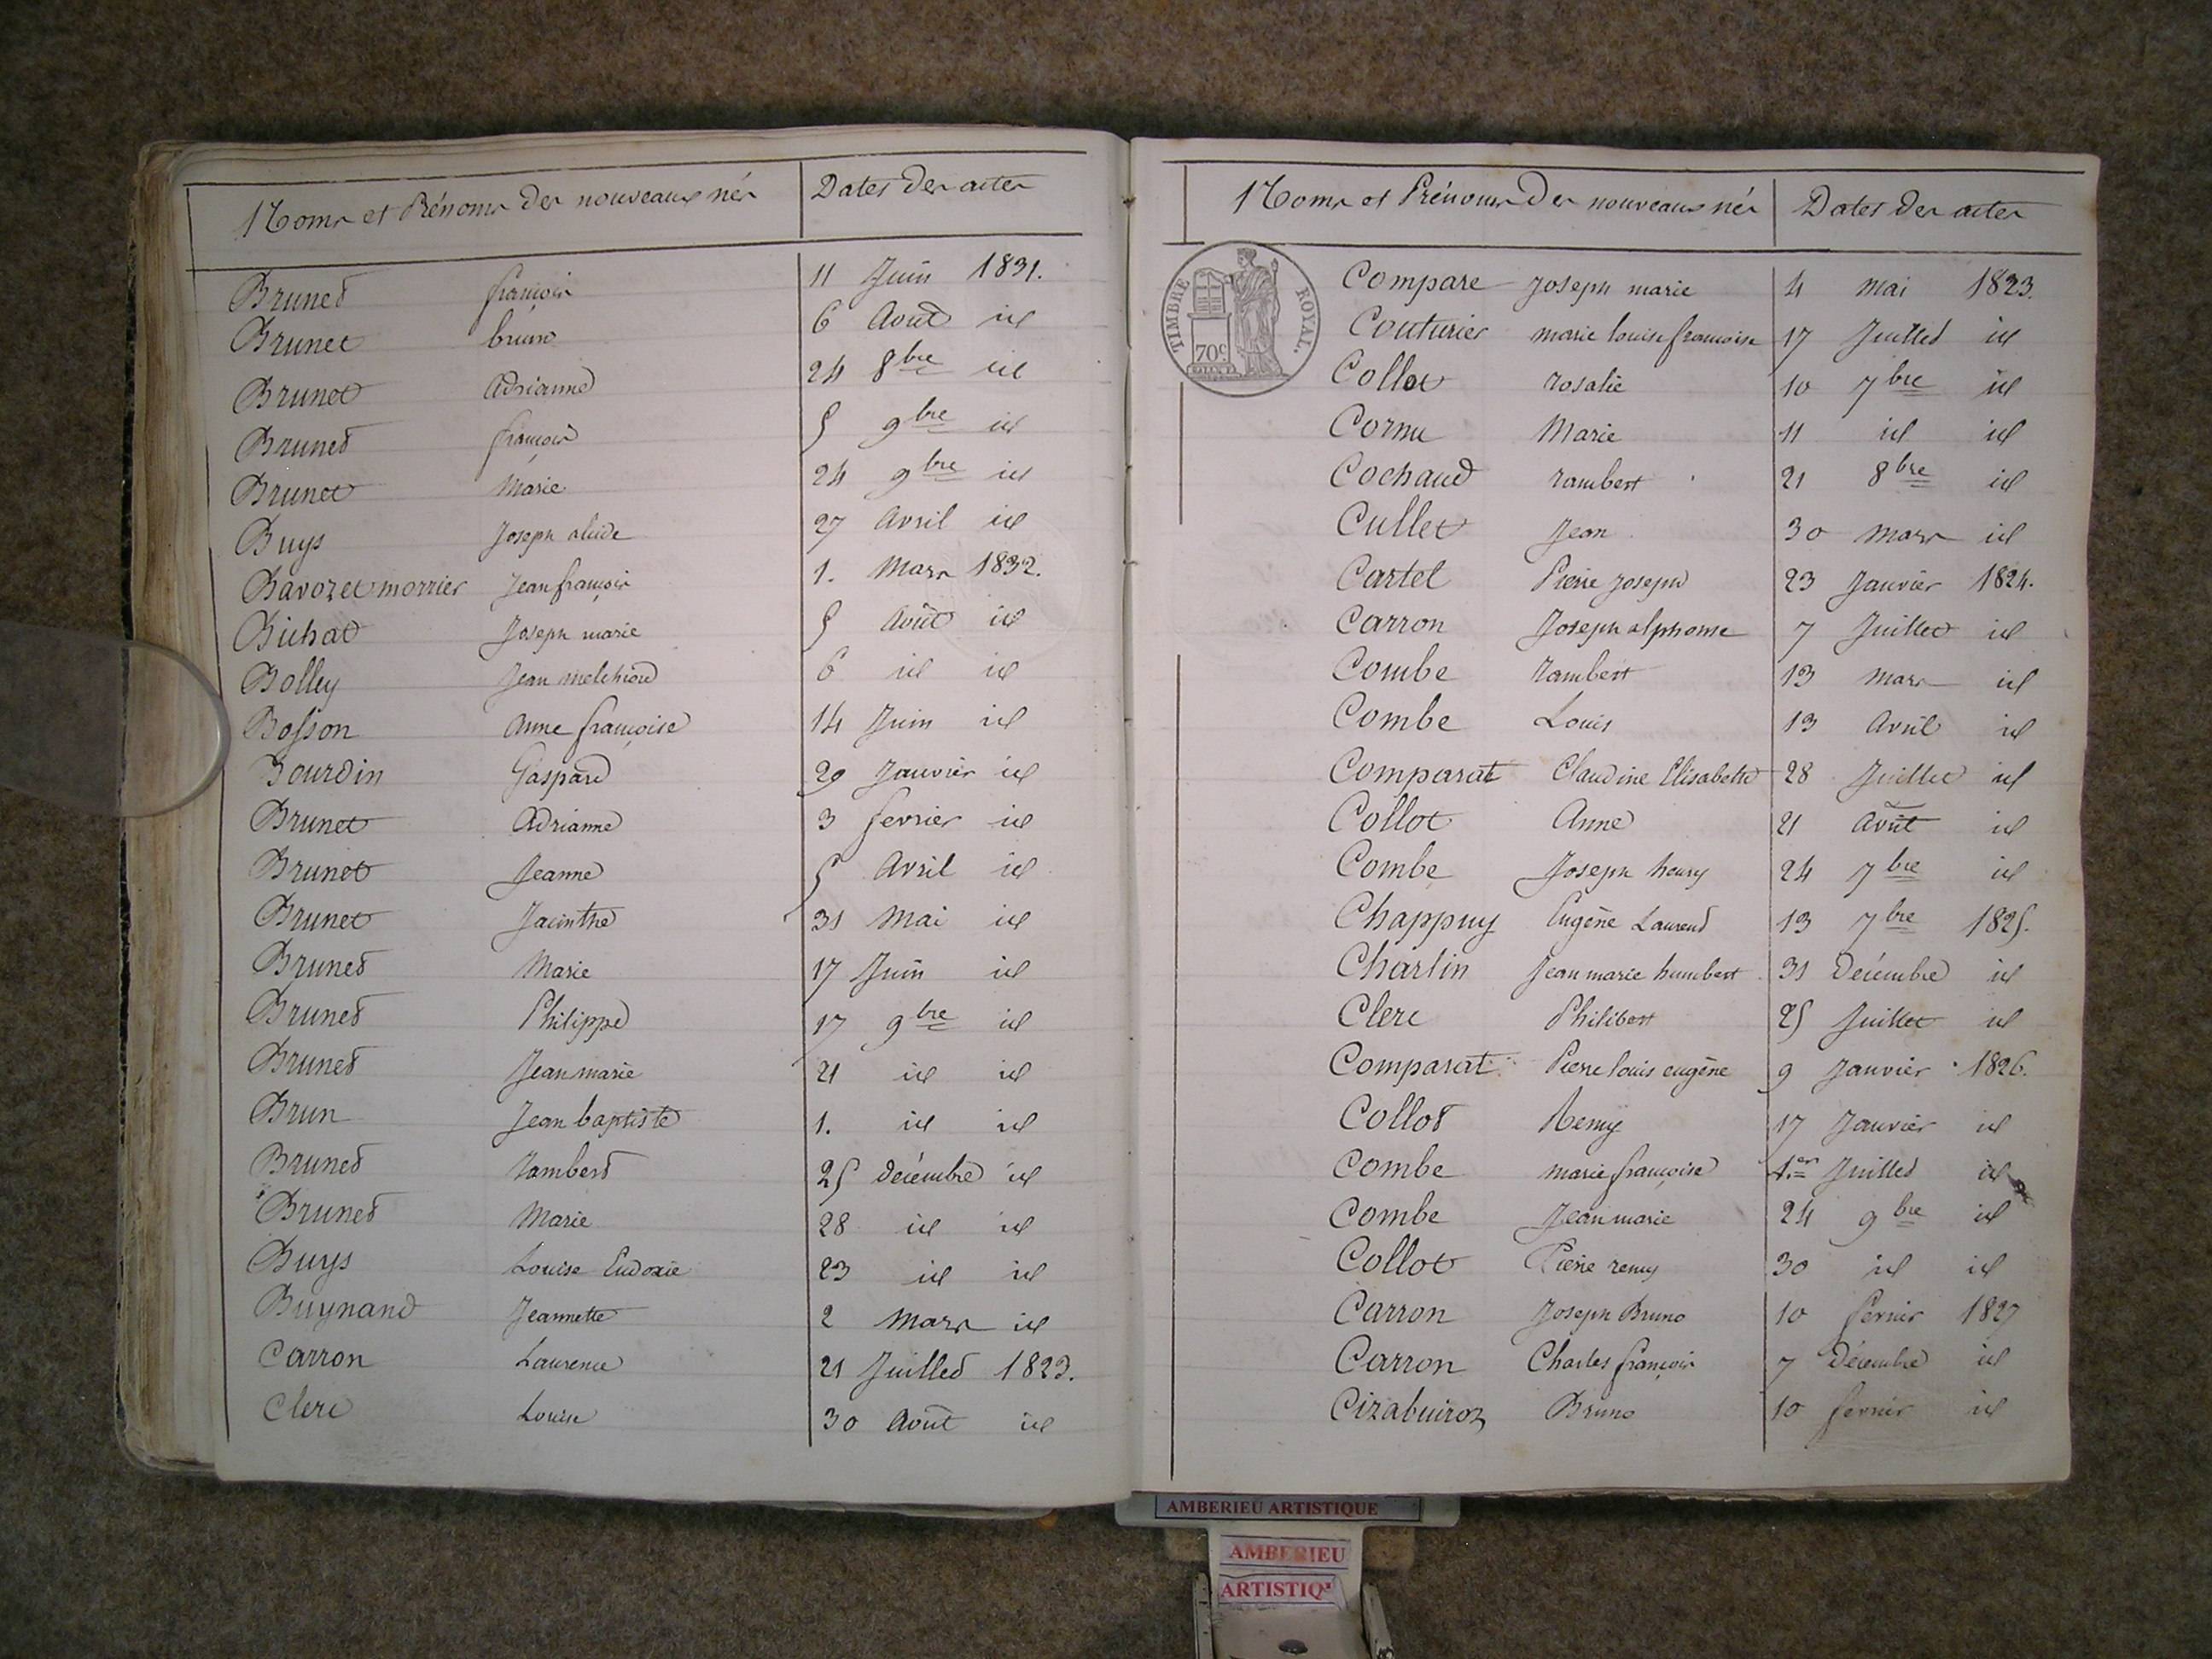 Noms et Prénoms des nouveaux nés Dates des actes
Brunet françois 11 Juin 1831.
Brunet bruno 6 Août id
Brunet Adrianne 24 8bre id
Brunet françois 5 9bre id
Brunet Marie 24 9bre id
Buys Joseph alcide 27 Avril id
Bavozet morrier Jean françois 1. Mars 1832.
Bichat Joseph marie 5 Août id
Bolley Jean melchior 6 id id
Bosson Anne françoise 14 Juin id
Bourdin Gaspard 29 Janvier id
Brunet Adrianne 3 fevrier id
Brunet Jeanne 5 Avril id
Brunet Jacinthe 31 Mai id
Brunet Marie 17 Juin id
Brunet Philippe 17 9bre id
Brunet Jean marie 21 id id
Brun Jean baptiste 1. id id
Brunet Rambert 25 décembre id
Brunet Marie 28 id id
Buys Louise Eudoxie 23 id id
Buynand Jeannette 2 Mars id
Carron Laurence 21 Juillet 1823.
Clerc Louise 30 Août id
Noms et Prénoms des nouveaux nés Dates des actes
TIMBRE ROYAL.
70c
Compare Joseph marie 4 Mai 1823.
Couturier marie louise francoise 17 Juillet id
Collot rosalie 10 7bre id
Cornu Marie 11 id id
Cochaud rambert 21 8bre id
Cullet Jean 30 mars id
Cartel Pierre Joseph 23 Janvier 1824.
Carron Joseph alphonse 7 Juillet id
Combe rambert 13 mars id
Combe Louis 13 Avril id
Comparat Claudine Elisabeth 28 Juillet id
Collot Anne 21 Août id
Combe Joseph henry 24 7bre id
Chappuy Eugène Laurent 13 7bre 1825.
Charlin Jean marie humbert 31 Décembre id
Clerc Philibert 25 Juillet id
Comparat Pierre louis eugène 9 Janvier 1826.
Collot Remy 17 Janvier id
Combe marie françoise 1.er Juillet id
Combe Jean marie 24 9bre id
Collot Pierre remy 30 id id
Carron Joseph Bruno 10 fevrier 1827
Carron Charles françois 7 Décembre id
Cizabuiroz Bruno 10 fevrier id
AMBERIEU ARTISTIQUE
AMBERIEU
ARTISTIQ